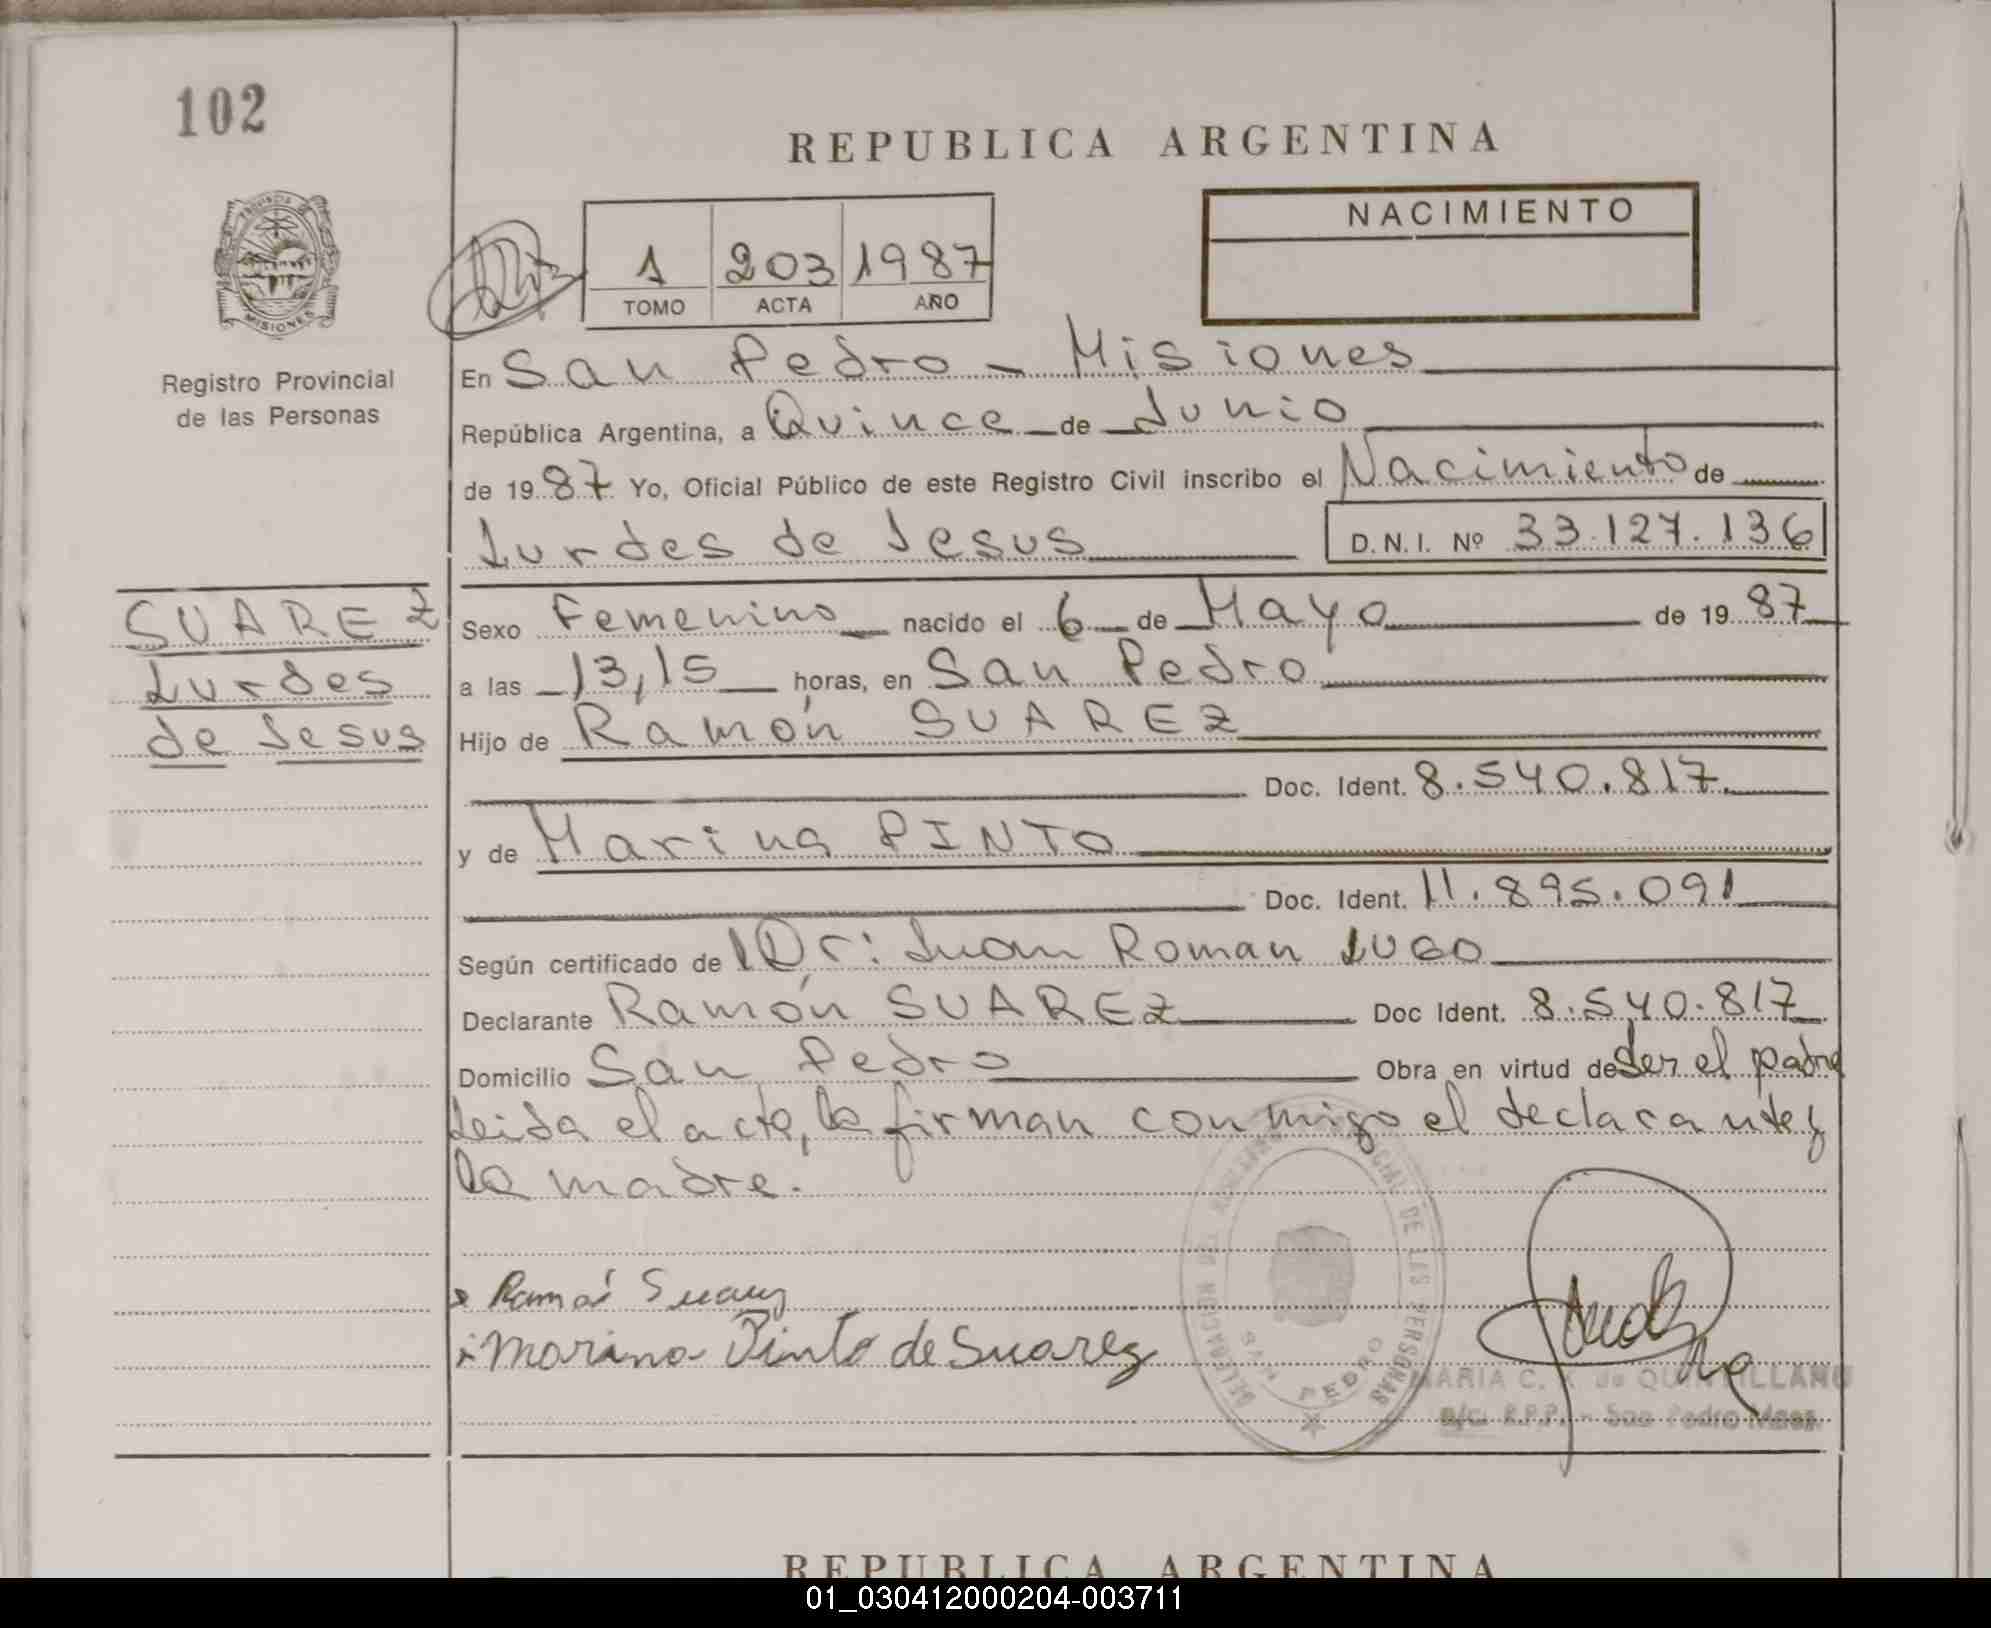 102
REPUBLICA ARGENTINA
PROVINCIA
MISIONES
1 203 1987
TOMO ACTA AÑO
NACIMIENTO
Registro Provincial
de las Personas
En San Pedro - Misiones
República Argentina, a Quince de Junio
de 1987 Yo, Oficial Público de este Registro Civil inscribo el Nacimiento de
Lurdes de Jesus D.N.I. Nº 33.127.136
SUAREZ
Lurdes
de Jesus
Sexo Femenino nacido el 6 de Mayo de 1987
a las 13,15 horas, en San Pedro
Hijo de Ramón SUAREZ
Doc. Ident. 8.540.817
y de Marina PINTO
Doc. Ident. 11.895.091
Según certificado de Dr: Juan Roman LUGO
Declarante Ramón SUAREZ Doc Ident. 8.540.817
Domicilio San Pedro Obra en virtud de Ser el padre
Leida el acta, la firman conmigo el declarante y
la madre.
Ramón Suarez
Marina Pinto de Suarez
DELEGACION DEL DE LAS PERSONAS
SAN PEDRO
MARIA C. K de QUINTILLANO
a/c. R.P.P. - San Pedro Mnes.
REPUBLICA ARGENTINA
01_030412000204-003711